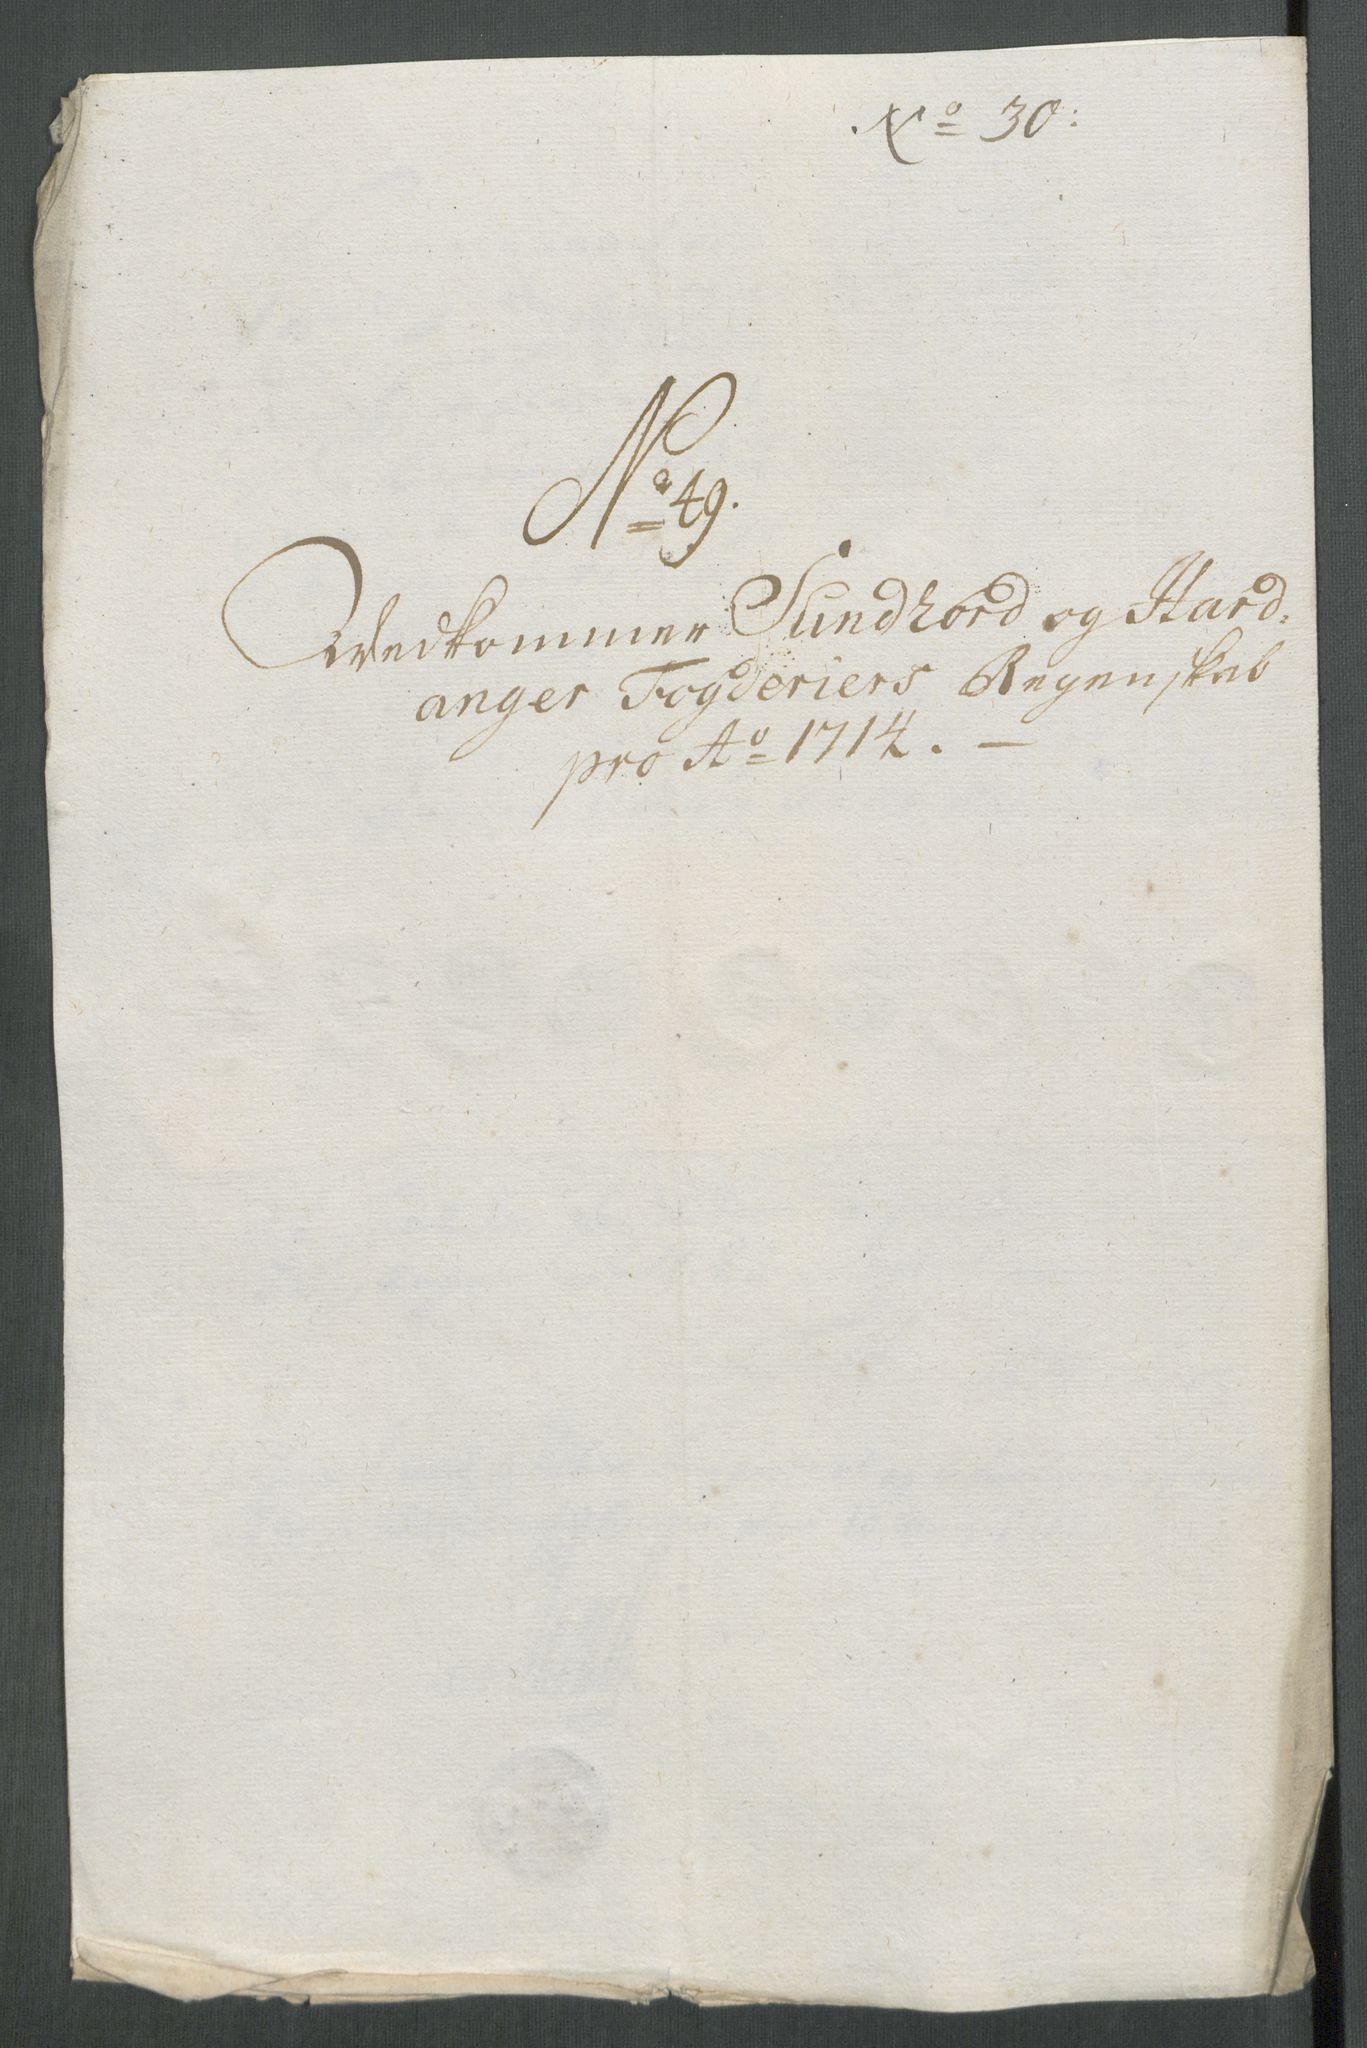 No 30:
No 49.
Vedkommer Sundhord og Hard,
anger Fogderiers Regenskab
pro Ao 1714. —